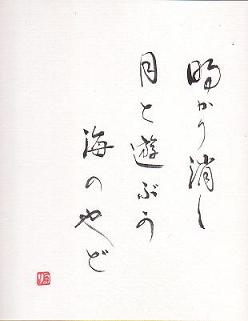 明かり消し
月と遊ぶう
海のやど